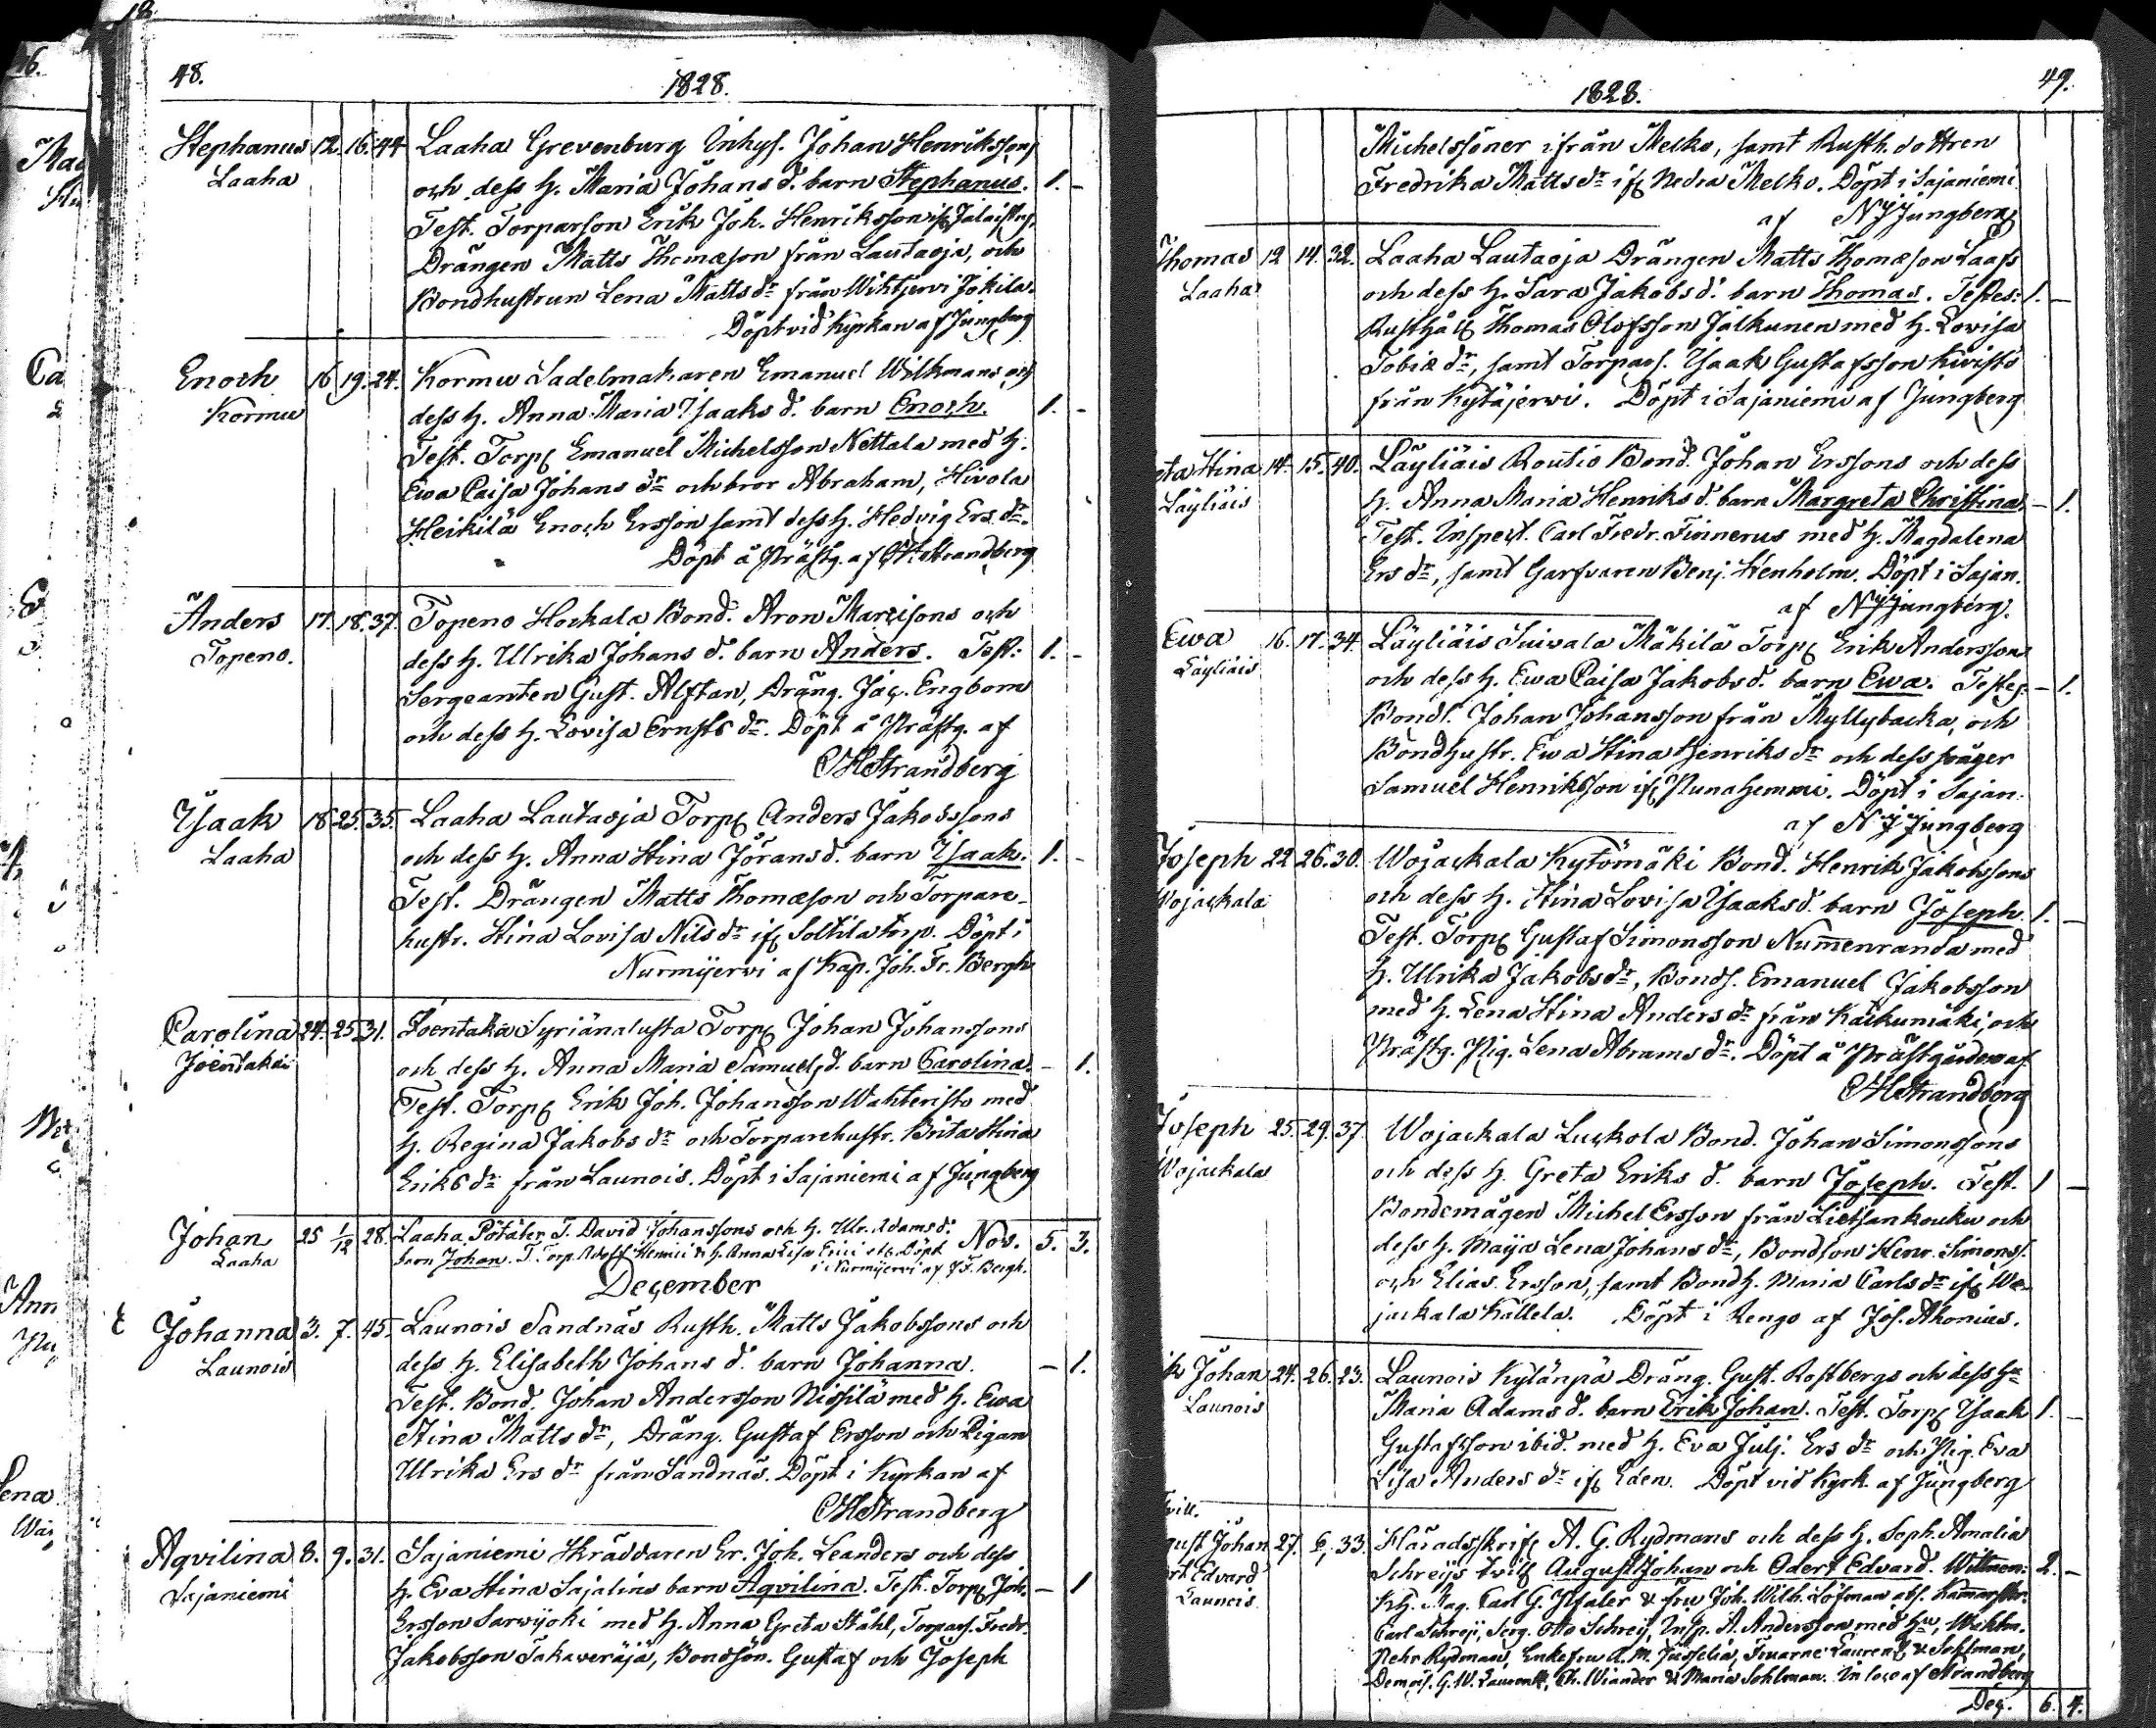 48.
1828.
Stephanus 12. 16. 44 Laaha Grevenburg Inhys. Johan Henriksson
Laaha och dess h. Maria Johans d. barn Stephanus. 1. -
Test. Torparson Erik Joh. Henriksson
Drängen Matts Thomæson från Lautaoja, och
Bondhustrun Lena Matts dr från Wihtjerwi Jokila.
Döpt vid Kyrkan af Jungberg
Enoch 16 19. 24. Kormu Sadelmakaren Emanuel Wilkmans och
Kormu dess h. Anna Maria Isaaks d. barn Enoch. 1. -
Test. Torp. Emanuel Michelsson Nettala med h.
Ewa Caisa Johans dr och bror Abraham, Hivola
Heikilä Enoch Ersson samt dess h. Hedvig Ers dr.
Döpt å Prästg. af CH Strandberg
Anders 17. 18. 37. Topeno Hockala Bond. Aron Marcisons och
Topeno. dess h. Ulrika Johans d. barn Anders. Test: 1. -
Sergeanten Gust. Alftan, Dräng. Jac. Engbom
och dess h. Lovisa Ernsts dr. Döpt å Prästg. af
CHStrandberg
Isaak 18 25. 35. Laaha Lautaoja Torp. Anders Jakobssons
Laaha och dess h. Anna Stina Jörans d. barn Isaak. 1. -
Test. Drängen Matts Thomæson och Torpare-
hustr. Stina Lovisa Nils dr if. Soltila torp. Döpt i
Nurmijerwi af Kap. Joh. Fr. Bergh
Carolina 24. 25. 31. Joentaka Syriänalusta Torp. Johan Johanssons
Joentaka och dess h. Anna Maria Samuels d. barn Carolina. - 1.
Test. Torp. Erik Joh. Johansson Wahteristo med
h. Regina Jakobs dr och Torparehustr. Brita Stina
Eriks dr från Launois. Döpt i Sajaniemi af Jungberg
Johan 25 1/12 28. Laaha Potäler T. David Johanssons och h. Ulr. Adams d. Nov. 5. 3.
Laaha barn Johan. T. Torp. Adolf Henrici & h. Anna Lisa Erici Döpt
i Nurmijerwi af J F. Bergh.
December
Johanna 3. 7. 45. Launois Sandnäs Rusth. Matts Jakobssons och
Launois dess h. Elisabeth Johans d. barn Johanna. - 1.
Test. Bond. Johan Andersson Nissilä med h. Ewa
Stina Matts dr, Dräng. Gustaf Ersson och Pigan
Ulrika Ers dr från Sandnäs. Döpt i Kyrkan af
CHStrandberg
Aqvilina 8. 9. 31. Sajaniemi Skräddaren Er. Joh. Leanders och dess
Sajaniemi h. Eva Stina Sajalins barn Aqvilina. Test. Torp. Joh. - 1
Ersson Sarwijoki med h. Anna Greta Ståhl, Torpars. Fredr.
Jakobsson Takaveräjä, Bondsön. Gustaf och Joseph
1828.
49.
Michelssöner ifrån Melko, samt Rusth. dottren
Fredrika Matts dr if. Nedra Melko. Döpt i Sajaniemi
af NJJungberg
Thomas 12 14. 32. Laaha Lautaoja Drängen Matts Thomæson Laass
Laaha och dess h. Sara Jakobs d. barn Thomas. Testes: 1. -
Rusthåll. Thomas Olofsson Jalkunen med h. Lovisa
Tobiæ dr, samt Torpars. Isaak Gustafsson Kuristo
från Kytäjerwi. Döpt i Sajaniemi af Jungberg
eta Stina 14. 15. 40. Läyliäis Routio Bond. Johan Erssons och dess
Läyliäis h. Anna Maria Henriks d. barn Margreta Christina. - 1.
Test. Inspect. Carl Fredr. Finnerus med h. Magdalena
Ers dr, samt Garfvaren Benj. Stenholm. Döpt i Sajan.
af NJJungberg.
Ewa 16. 17. 34. Läyliäis Suiwala Mäkilä Torp. Erik Anderssons
Läyliäis och dess h. Ewa Caisa Jakobs d. barn Ewa. Testes. - 1.
Bonds. Johan Johansson från Myllybacka, och
Bondhustr. Ewa Stina Henriks dr och dess svåger
Samuel Henriksson if. Nunahemmi. Döpt i Sajan.
af NJJungberg
Joseph 22 26. 30. Wojackala Kytömäki Bond. Henrik Jakobssons
Wojackala och dess h. Stina Lovisa Isaaks d. barn Joseph. 1. -
Test. Torp. Gustaf Simonsson Nummenranda med
h. Ulrika Jakobs dr, Bonds. Emanuel Jakobsson
med h. Lena Stina Anders dr från Kackumäki, och
Prästg. Pig. Lena Abrams dr. Döpt å Prästgården af
CHStrandberg
Joseph 25. 29. 37. Wojackala Luckola Bond. Johan Simonssons
Wojackala och dess h. Greta Eriks d. barn Joseph. Test. 1 -
Bondemågen Michel Ersson från Lietsankouku och
dess h. Maija Lena Johans dr, Bondson Henr. Simonss.
och Elias Ersson, samt Bondh. Maria Carls dr if. Wo-
jackala Kallela. Döpt i Rengo af Jos. Ahonius.
Johan 24. 26. 23. Launois Kylänpä Dräng. Gust. Rostbergs och dess h.
Launois Maria Adams d. barn Erik Johan. Test. Torp. Isaak 1. -
Gustafsson ibid. med h. Eva Julj. Ers dr och Pig. Eva
Lisa Anders dr if. Eden. Döpt vid Kyrk. af Jungberg
gust Johan 27. 33. Häradsskrif. A. G. Rydmans och dess h. Soph. Amalia
Edvard Schreijs twill. August Johan och Odert Edvard. Wittnen: 2. -
Launois Mag. Carl G. Ilfaler & fru Joh. Wilh. Löfman
Carl Schreij, Serg. Otto Schreij, Insp. A. Andersson med hu,
Pehr Rydman, Enkefru A. M. Jusselia, Fruarne Laurenti & Sohlman,
Ch. Wiander & Maria Sohlman. In loco af Strandberg
Dec. 6. 4.